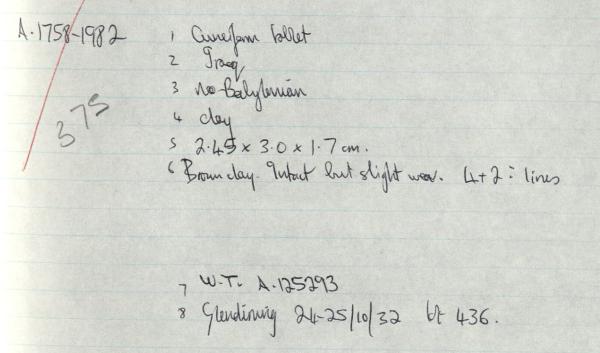 A.1758-1982 1 Cuneiform tablet
2 Iraq
3 neo-Babylonian
4 clay
375
5 2.45 x 3.0 x 1.7 cm.
6 Brown clay. Intact but slight wear. 4+2 = lines
7 W.T. A.125293
8 Glendining 24-25/10/32 lot 436.